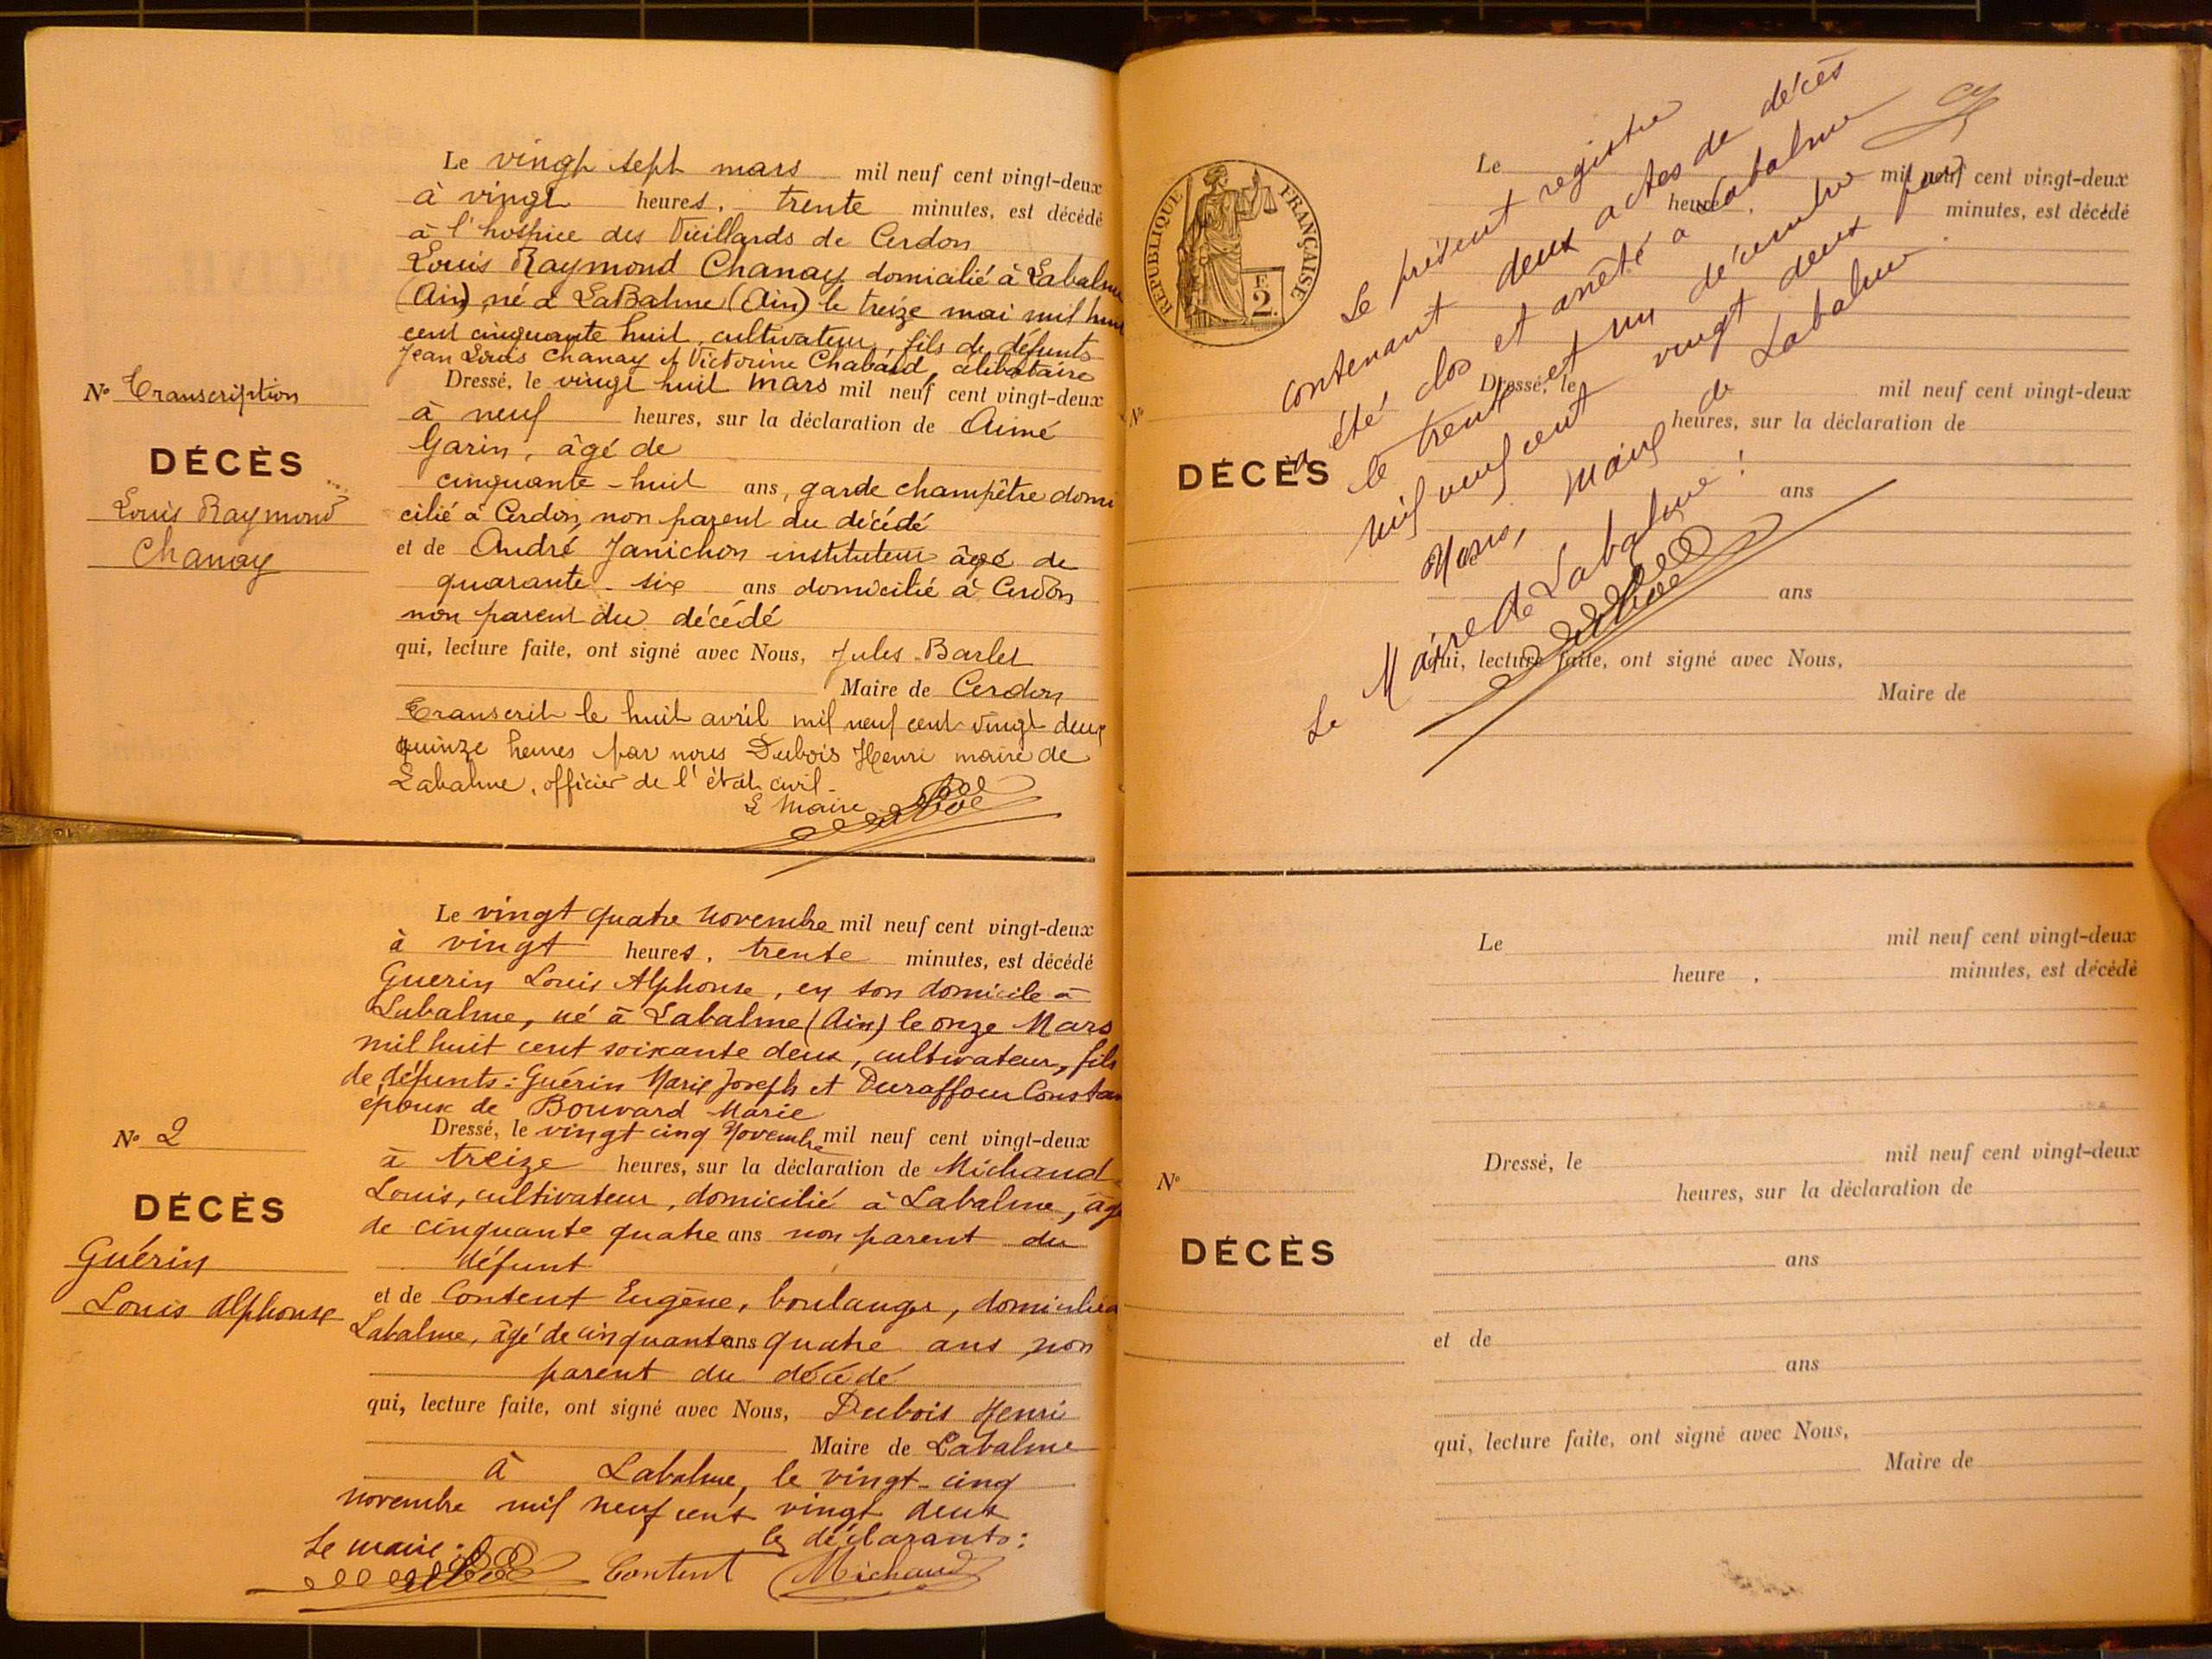 Le vingt sept mars mil neuf cent vingt-deux
à vingt heures, trente minutes, est décédé
à l'hospice des Vieillards de Cerdon
Louis Raymond Chanay domicilié à Labalme
(Ain) né à LaBalme (Ain) le treize mai mil huit
cent cinquante huit, cultivateur, fils de défunts
Jean Louis Chanay et Victorine Chabaud, célibataire
Nº Transcription
DÉCÈS
Louis Raymond
Chanay
Dressé, le vingt huit mars mil neuf cent vingt-deux
à neuf heures, sur la déclaration de Aimé
Garin, âgé de
cinquante-huit ans, garde champêtre domi
cilié à Cerdon, non parent du décédé
et de André Janichon instituteur âgé de
quarante-six ans domicilié à Cerdon
non parent du décédé
qui, lecture faite, ont signé avec Nous, Jules Barlet
Maire de Cerdon
Transcrit le huit avril mil neuf cent vingt deux
quinze heures par nous Dubois Henri maire de
Labalme, officier de l'état civil.
Le Maire
Le vingt quatre novembre mil neuf cent vingt-deux
à vingt heures, trente minutes, est décédé
Guerin Louis Alphonse, en son domicile à
Labalme, né à Labalme (Ain) le onze Mars
mil huit cent soixante deux, cultivateur, fils
de défunts: Guérin Marie Joseph et Duraffour Constan
époux de Bouvard Marie
Nº 2
DÉCÈS
Guérin
Louis Alphonse
Dressé, le vingt cinq Novembre mil neuf cent vingt-deux
à treize heures, sur la déclaration de Michaud
Louis, cultivateur, domicilié à Labalme, âgé
de cinquante quatre ans non parent du
défunt
et de Content Eugène, boulanger, domicilié à
Labalme, âgé de cinquante ans quatre ans non
parent du décédé
qui, lecture faite, ont signé avec Nous, Dubois Henri
Maire de Labalme
à Labalme, le vingt-cinq
novembre mil neuf cent vingt deux
Le maire: les déclarants:
Content Michaud
RÉPUBLIQUE FRANÇAISE
F.
2.
Le présent registre
contenant deux actes de décès
a été clos et arrêté à Labalme
le trente et un décembre
mil neuf cent vingt deux par
Nous, Maire de Labalme.
Le Maire de Labalme:
Le mil neuf cent vingt-deux
heures, minutes, est décédé
Nº
DÉCÈS
Dressé, le mil neuf cent vingt-deux
heures, sur la déclaration de
ans
ans
qui, lecture faite, ont signé avec Nous,
Maire de
Le mil neuf cent vingt-deux
heure , minutes, est décédé
Nº
DÉCÈS
Dressé, le mil neuf cent vingt-deux
heures, sur la déclaration de
ans
et de
ans
qui, lecture faite, ont signé avec Nous,
Maire de